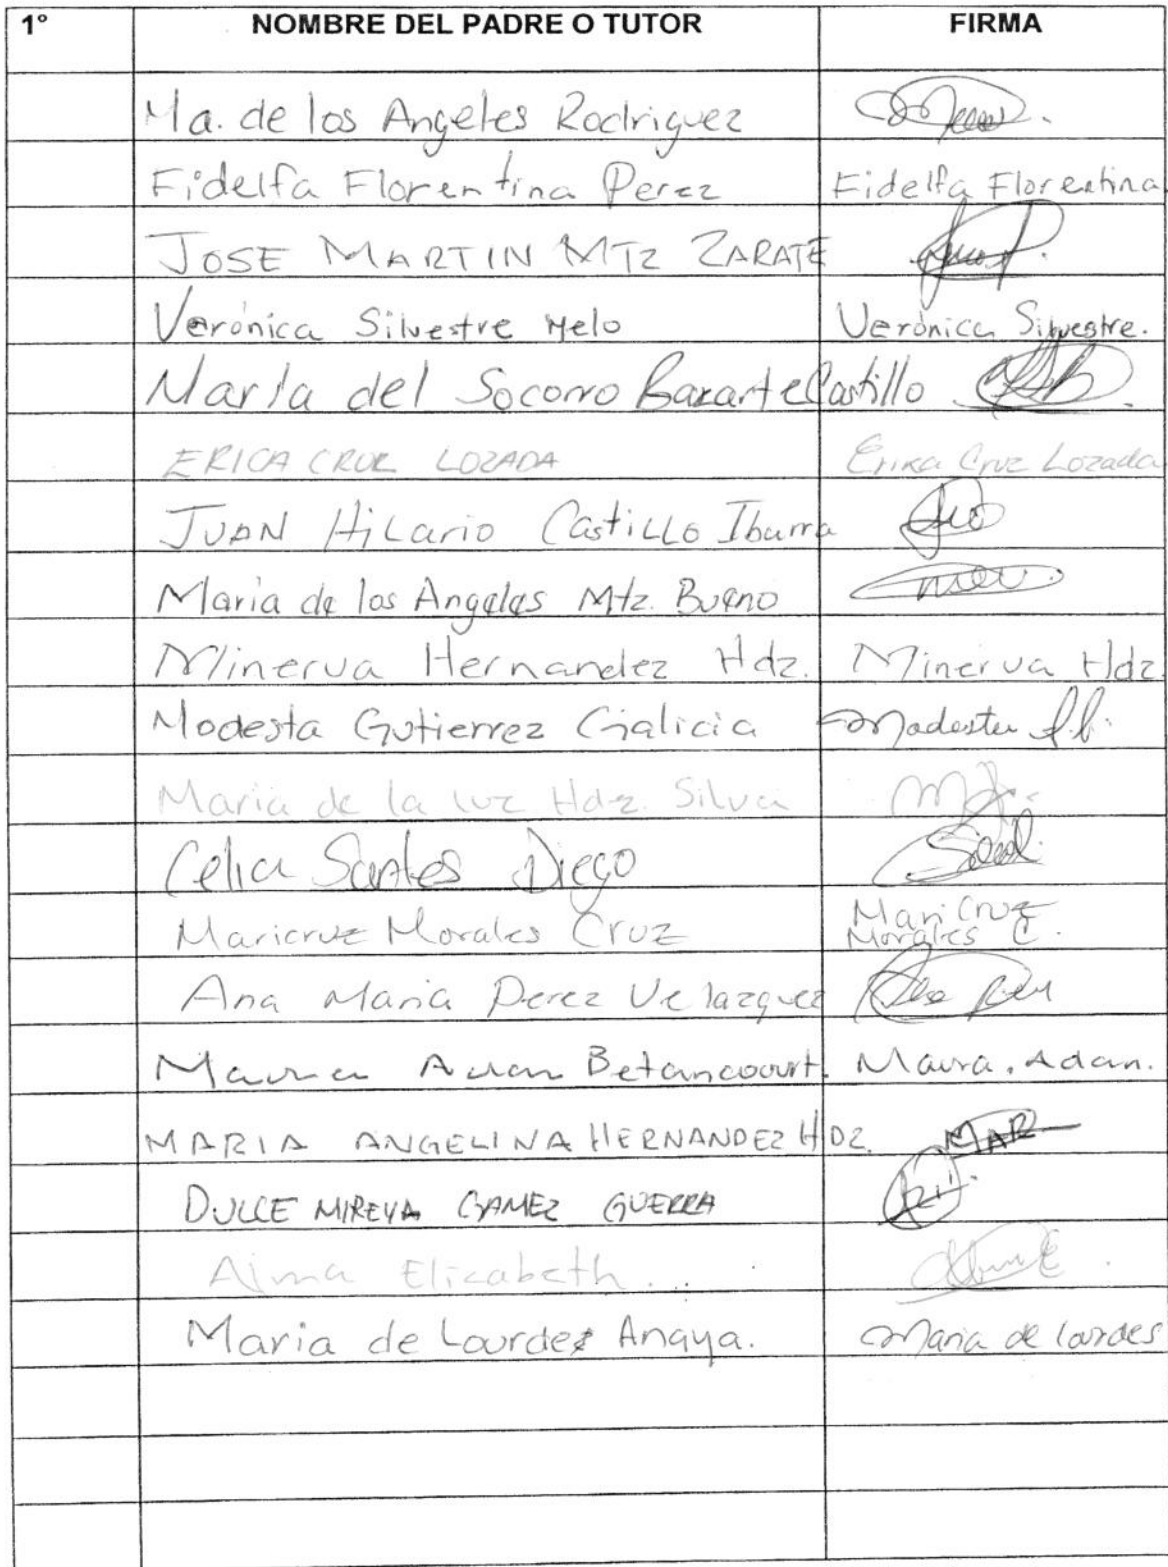 1° NOMBRE DEL PADRE O TUTOR FIRMA
Ma. de los Angeles Rodriguez
Fidelfa Florentina Perez Fidelfa Florentina
JOSE MARTIN MTZ ZARATE
Verónica Silvestre Melo Verónica Silvestre.
María del Socorro Bazarte Castillo
ERICA CRUZ LOZADA Erika Cruz Lozada
JUAN HiLario CastiLLo Ibarra
Maria de los Angeles Mtz. Bueno
Minerva Hernandez Hdz. Minerva Hdz.
Modesta Gutierrez Galicia Modesta
Maria de la luz Hdz. Silva
Celia Santos Diego
Maricruz Morales Cruz Mari Cruz
Morales C.
Ana Maria Perez Velazquez
Maura Adan Betancourt. Maura. Adan.
MARIA ANGELINA HERNANDEZ HDZ. MAR
DULCE MIREYA GAMEZ GUERRA
Alma Elizabeth...
Maria de Lourdes Anaya. Maria de lourdes